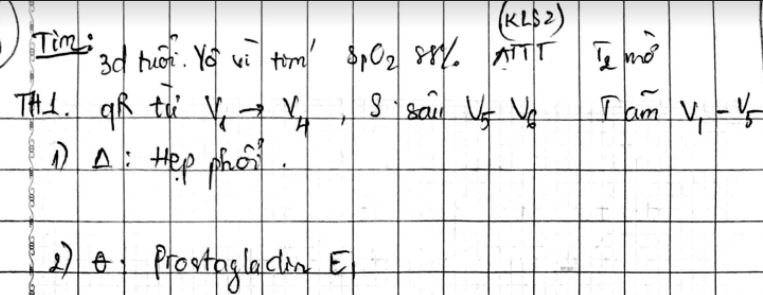 (KLS2)
Tim: 3d tuổi. Vô vì tím SpO2 88%. ATTT T2 mờ
TH1. qR từ V1 → V4, S sâu V5 V6 T âm V1 - V5
1) Δ: Hẹp phổi.
2) θ: Prostagladin E1